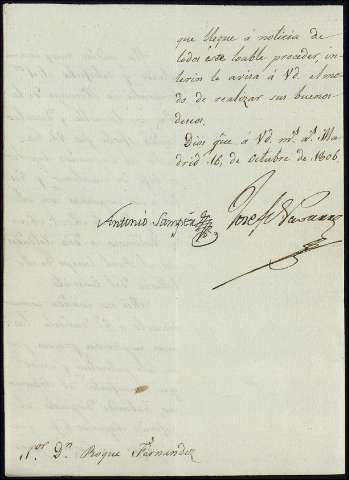 que llegue á noticia de
todos este loable proceder, in-
terin le avisa á Vd. el mo-
do de realizar sus buenos
deseos.
Dios gũe á Vd. mˢ. aˢ. Ma-
drid 16, de octubre de 1806.
Antonio Sampér
Josef
S.ᵒʳ Dⁿ Roque Fernandez